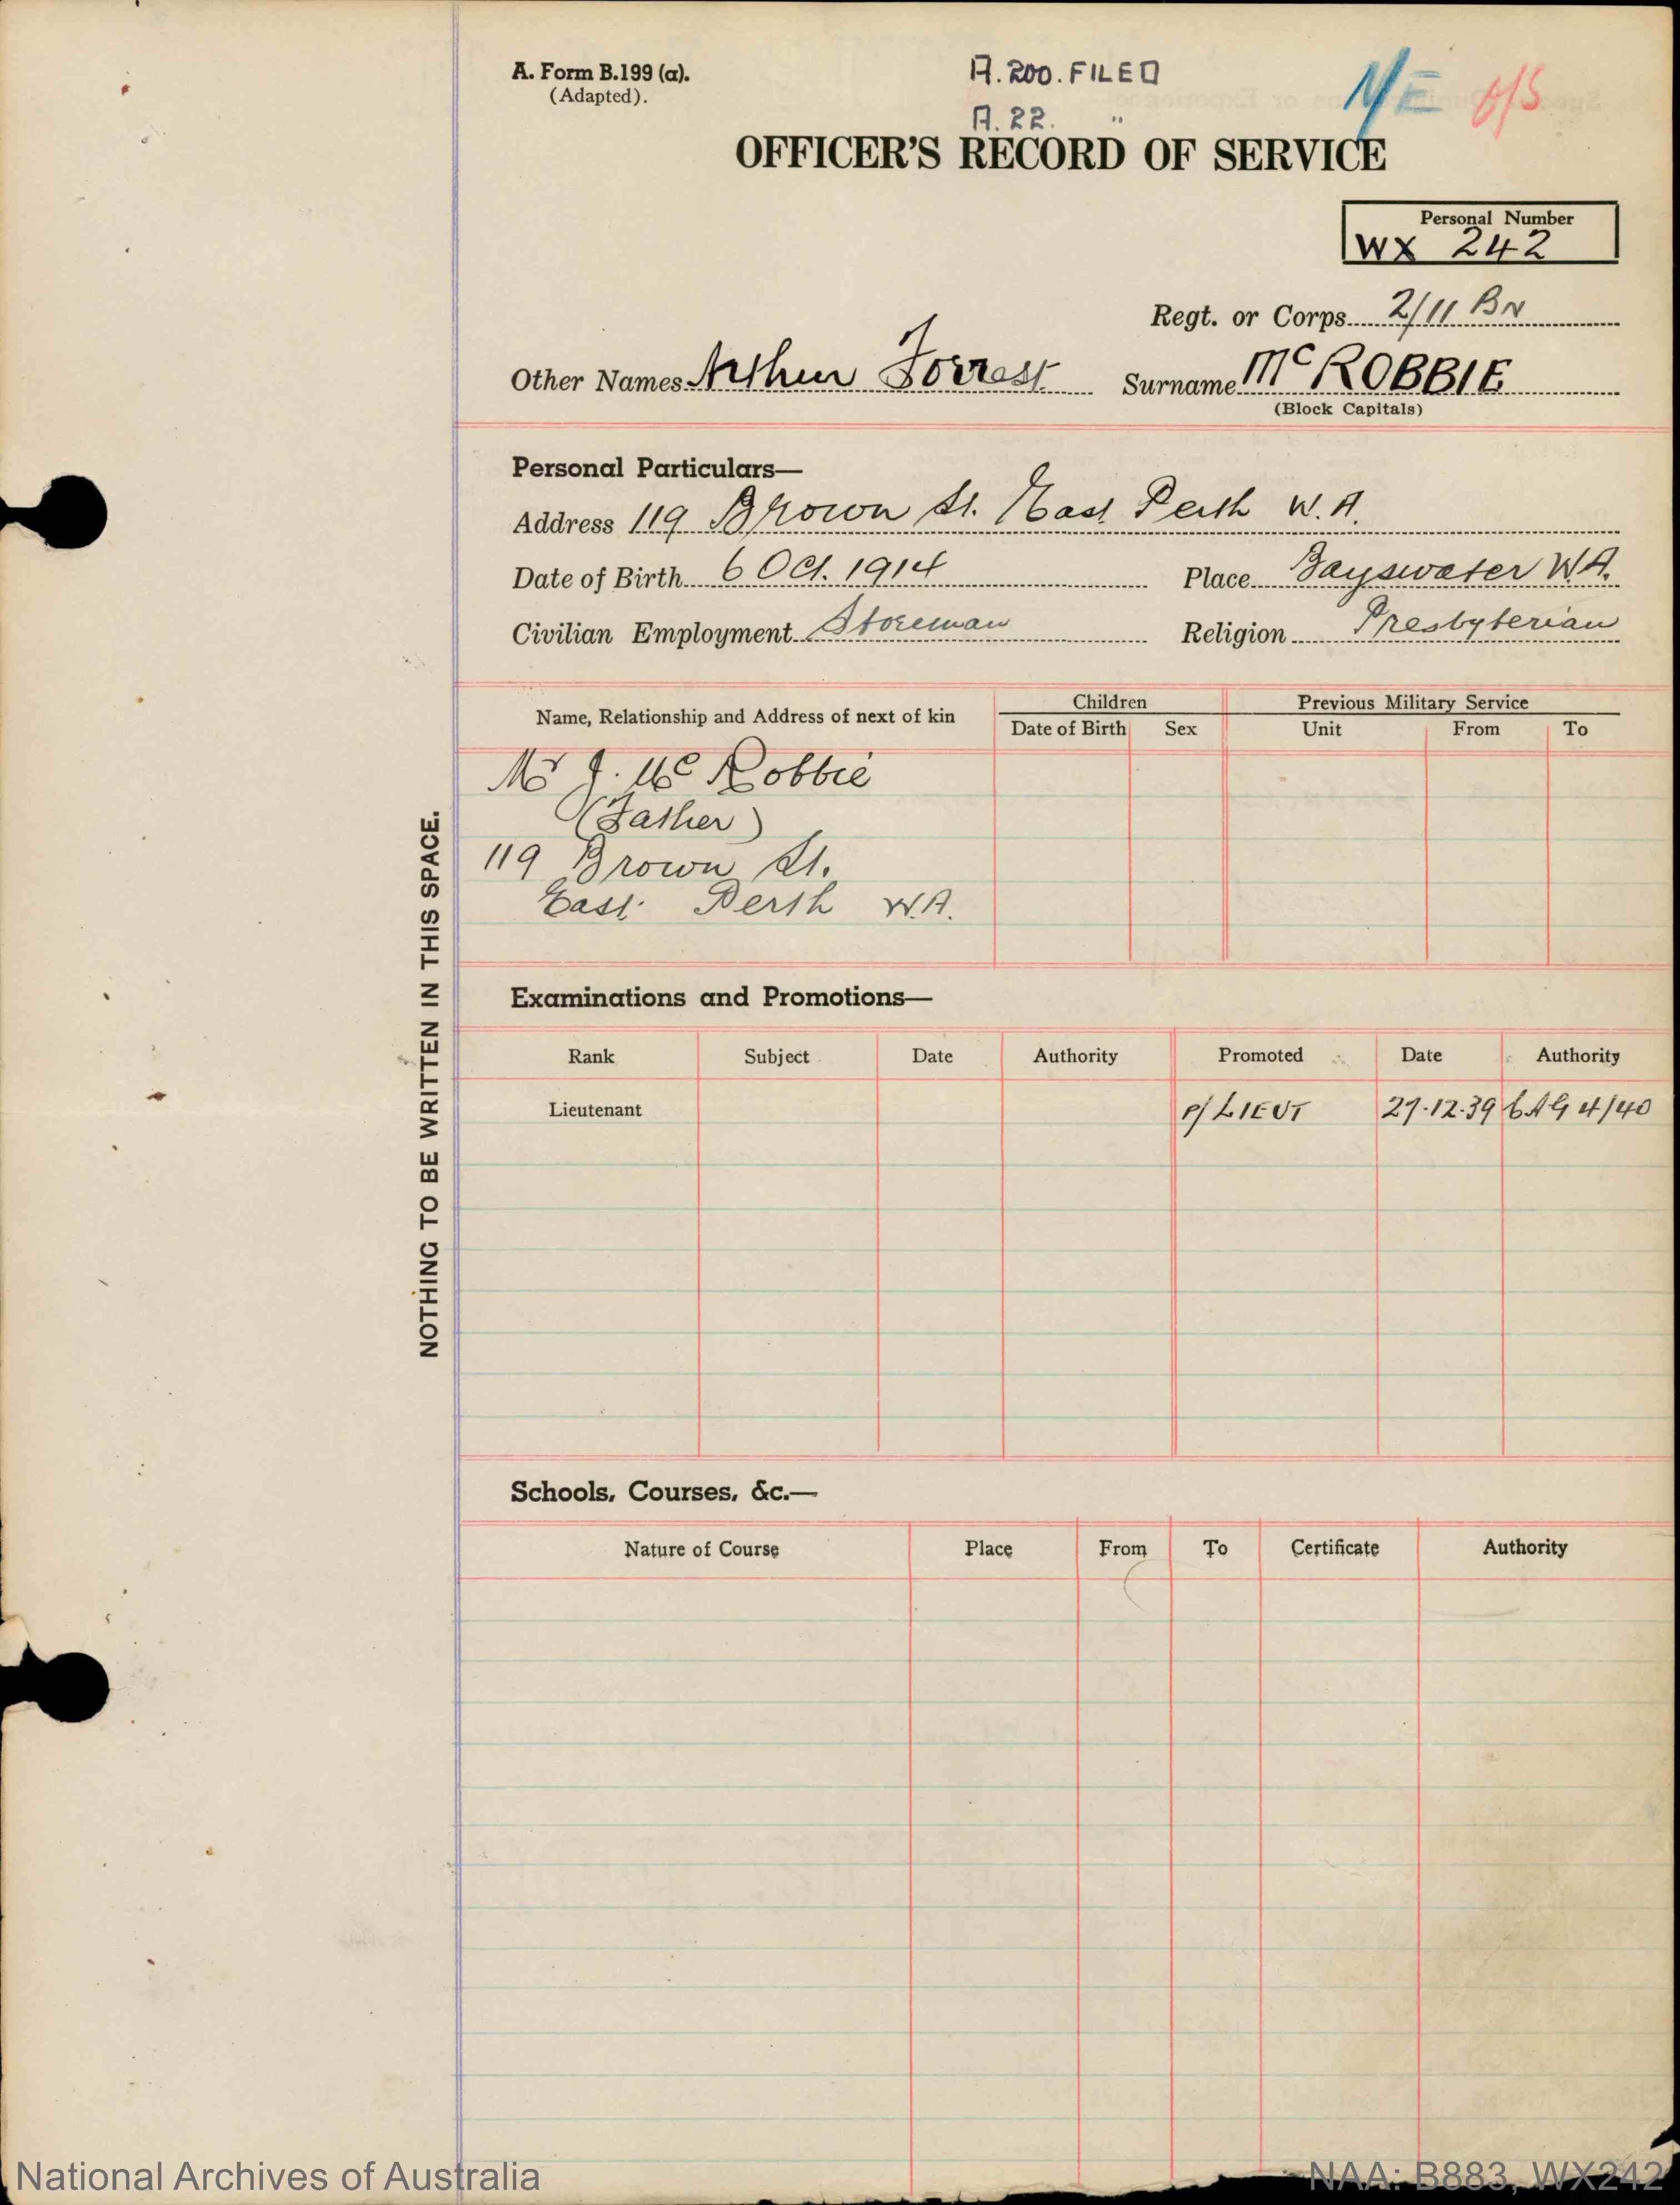 A. Form B.199 (a).
(Adapted).
A. 200. FILED
A. 22. "
N/E
OFFICER'S RECORD OF SERVICE
Personal Number
WX 242
Regt. or Corps 2/11 BN
Other Names Arthur Forrest Surname McROBBIE
(Block Capitals)
Personal Particulars—
Address 119 Brown St. East Perth W.A.
Date of Birth 6 Oct. 1914 Place Bayswater W.A.
Civilian Employment Storeman Religion Presbyterian
Name, Relationship and Address of next of kin Children Previous Military Service
Date of Birth Sex Unit From To
Mr J. McRobbie
(Father)
119 Brown St.
East Perth W.A.
NOTHING TO BE WRITTEN IN THIS SPACE.
Examinations and Promotions—
Rank Subject Date Authority Promoted Date Authority
Lieutenant P/ LIEUT 27.12.39 6 AG 4/40
Schools, Courses, &c.—
Nature of Course Place From To Certificate Authority
National Archives of Australia NAA: B883, WX242